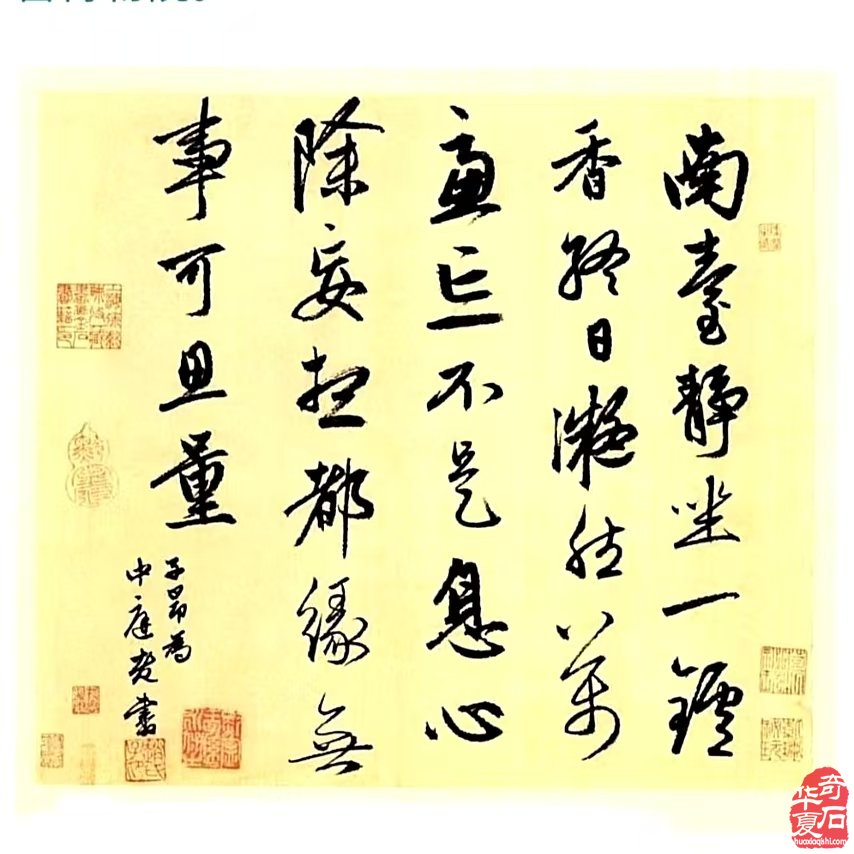 南臺靜坐一鑪
香終日凝然萬
慮亡不是息心
除妄想都緣無
事可思量
子昂為
中庭書
华夏
奇石
huaxiaqishi.com